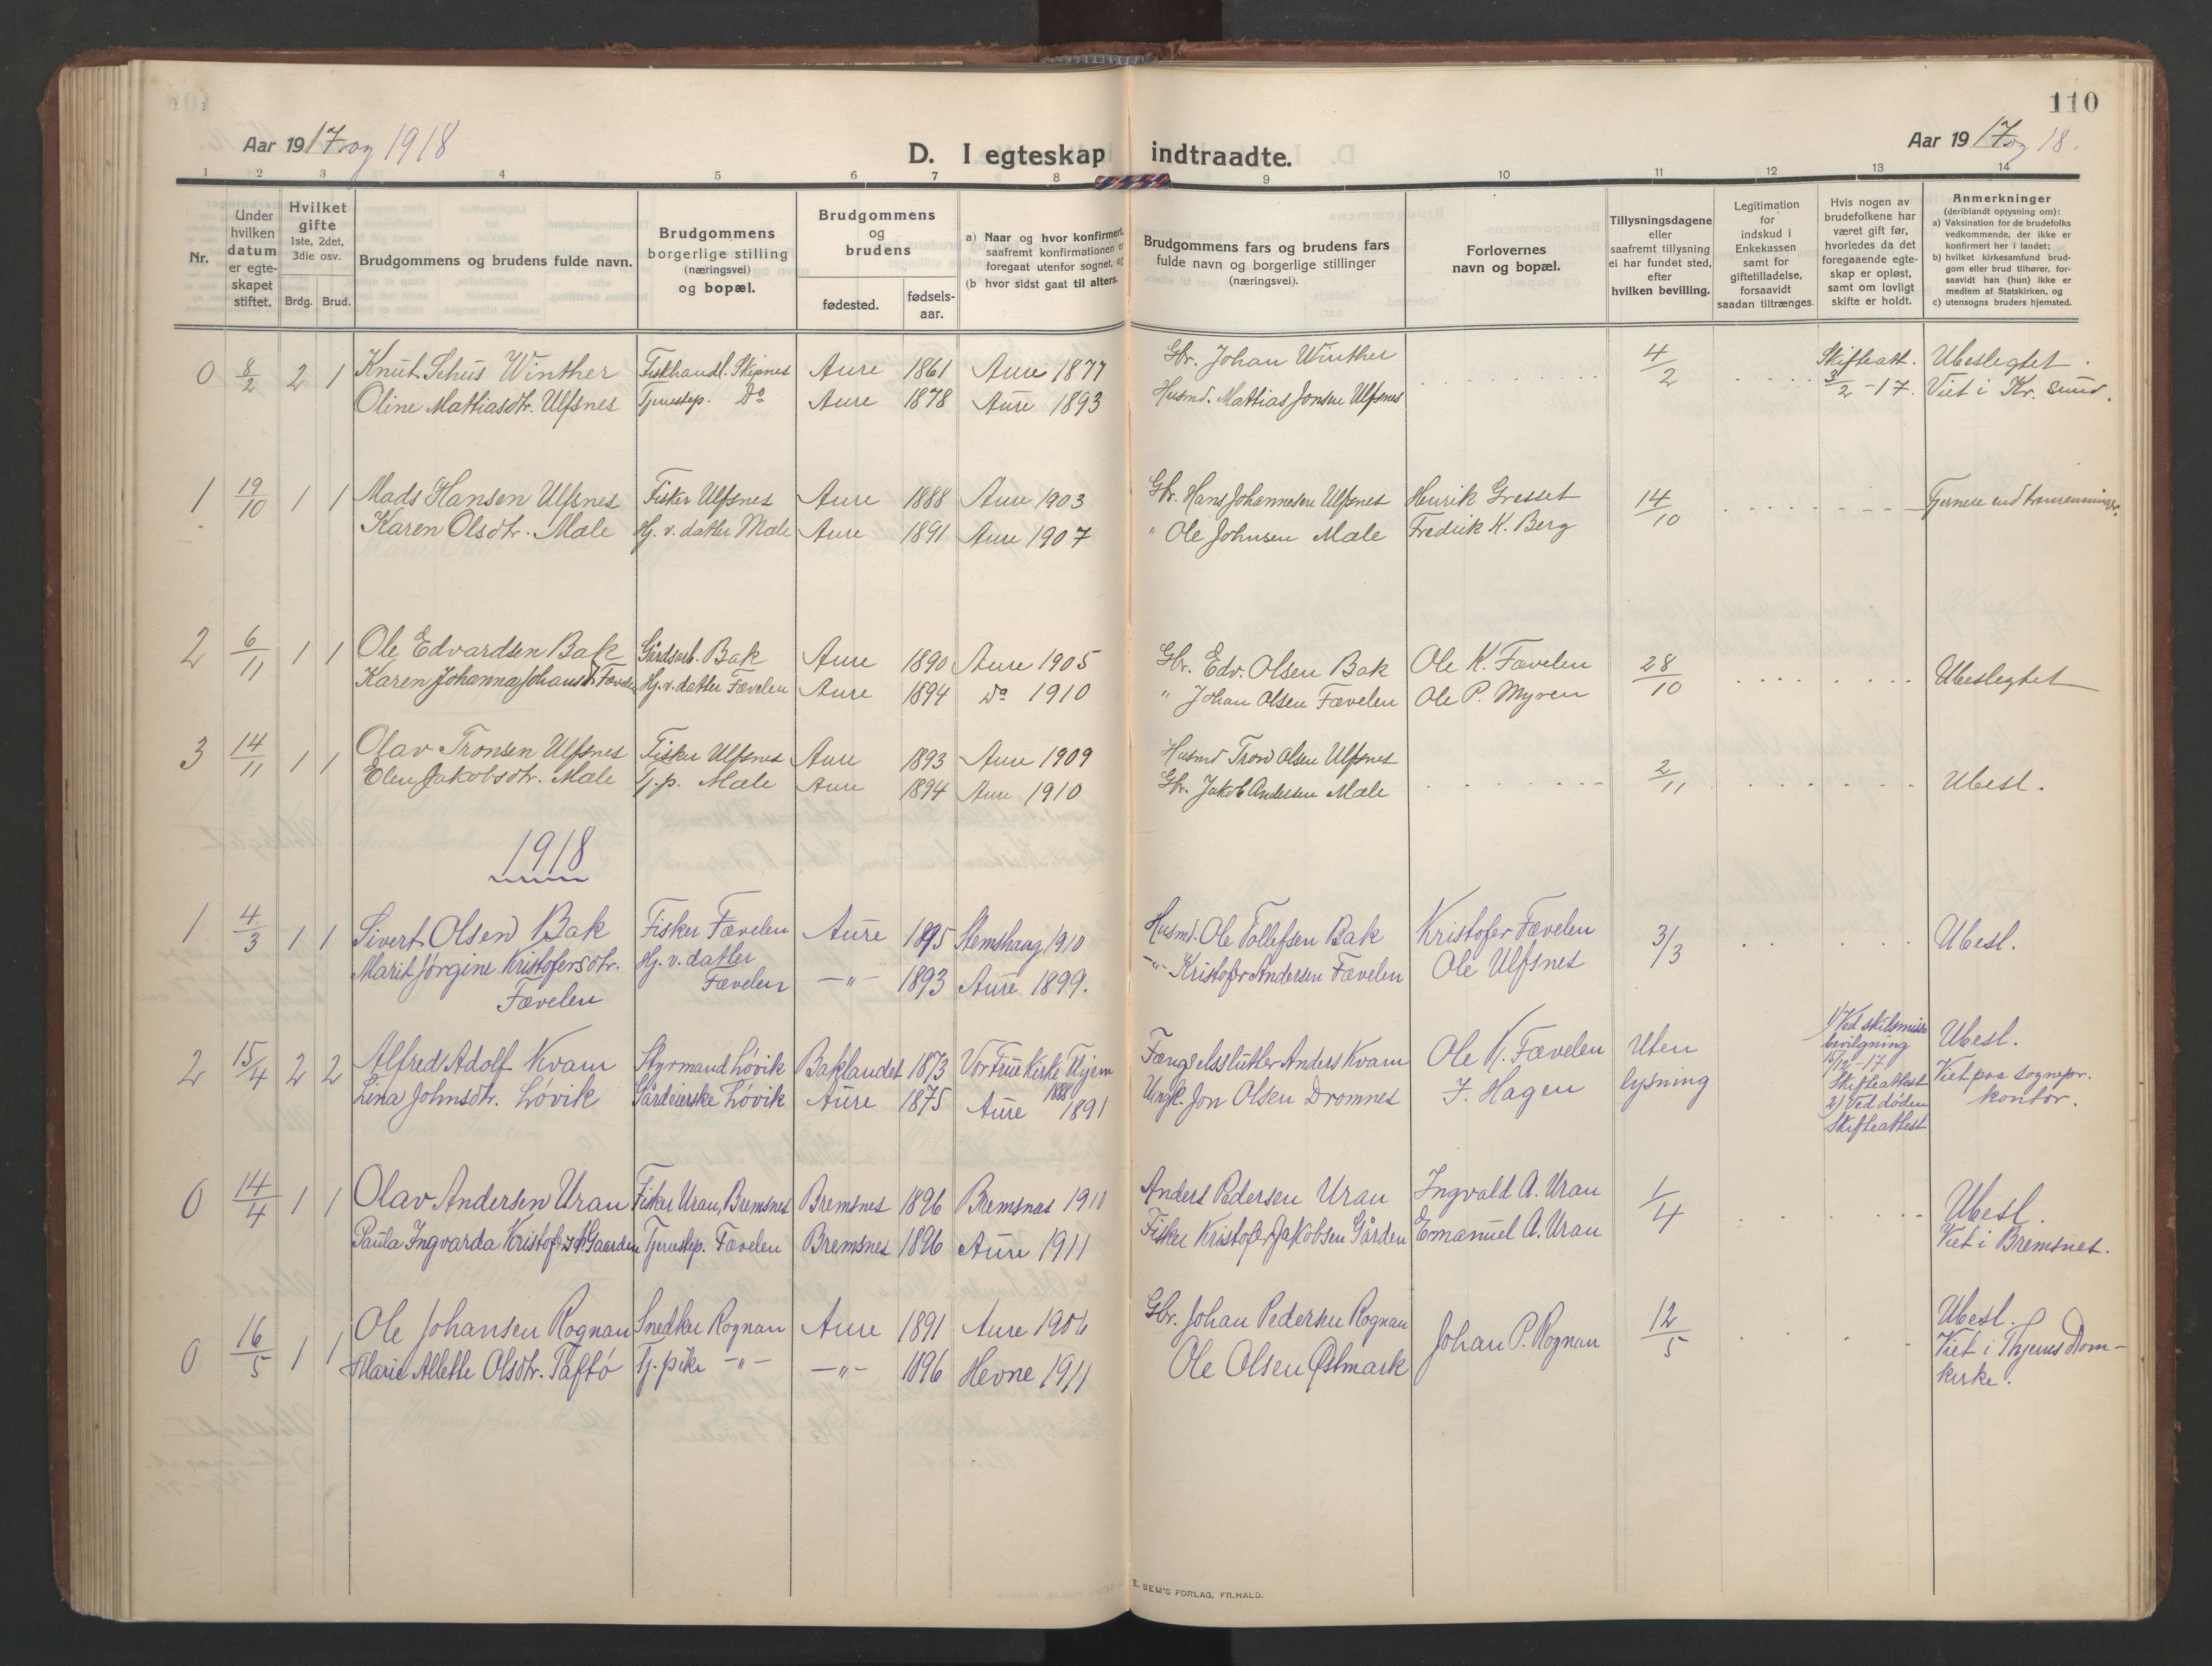 110
Aar 1917 og 1918
D. I egteskap indtraadte.
Aar 1917 og 18.
1 2 3 4 5 6 7 8 9 10 11 12 13 14
Nr.
Under hvilken datum er egte-skapet stiftet.
Hvilket gifte 1ste, 2det, 3die osv.
Brdg. Brud.
Brudgommens og brudens fulde navn.
Brudgommens borgerlige stilling (næringsvei) og bopæl.
Brudgommens og brudens
fødested. fødsels-aar.
a) Naar og hvor konfirmert, saafremt konfirmationen er foregaat utenfor sognet, og
(b hvor sidst gaat til alters.
Brudgommens fars og brudens fars fulde navn og borgerlige stillinger (næringsvei).
Forlovernes navn og bopæl.
Tillysningsdagene eller saafremt tillysning ei har fundet sted, efter hvilken bevilling.
Legitimation for indskud i Enkekassen samt for giftetilladelse, forsaavidt saadan tiltrænges.
Hvis nogen av brudefolkene har været gift før, hvorledes da det foregaaende egte-skap er opløst, samt om lovligt skifte er holdt.
Anmerkninger
(deriblandt opjysning om):
a) Vaksination for de brudefolks vedkommende, der ikke er konfirmert her i landet;
b) hvilket kirkesamfund brud-gom eller brud tilhører, for-saavidt han (hun) ikke er medlem af Statskirken, og
c) utensogns bruders hjemsted.
0 8/2 2 1 Knut Schüs Winther Fiskhandl. Skipnes Aure 1861 Aure 1877 Gbr. Johan Winther 4/2 Skifteatt. Ubeslegtet.
Oline Mattiasdtr. Ulfsnes Tjenestep. Do Aure 1878 Aure 1893 Husmd. Mattias Jonsen Ulfsnes 3/2 -17. Viet i Kr. sund.
1 19/10 1 1 Mads Hansen Ulfsnes Fisker Ulfsnes Aure 1888 Aure 1903 Gbr. Hans Johannesen Ulfsnes Henrik Gresset 14/10 Fjernere end
Karen Olsdtr. Mæle Hj. v. datter Mæle Aure 1891 Aure 1907 " Ole Johnsen Mæle Fredrik K. Berg
2 6/11 1 1 Ole Edvardsen Bak Gårdsarb. Bak Aure 1890 Aure 1905 Gbr. Edv. Olsen Bak Ole K. Fævelen 28/10 Ubeslegtet
Karen Johanna Johansd. Fævelen Hj. v. datter Fævelen Aure 1894 Do 1910 " Johan Olsen Fævelen Ole P. Myren
3 14/11 1 1 Olav Tronsen Ulfsnes Fisker Ulfsnes Aure 1893 Aure 1909 Husmd Tron Olsen Ulfsnes 2/11 Ubesl.
Elen Jakobsdtr. Mæle Tj. p. Mæle Aure 1894 Aure 1910 Gbr. Jakob Andersen Mæle
1918
1 4/3 1 1 Sivert Olsen Bak Fisker Fævelen Aure 1895 Stemshaug 1910 Husmd. Ole Tollefsen Bak Kristofer Fævelen 3/3 Ubesl.
Marit Jørgine Kristofersdtr. Hj. v. datter -"- Kristofer Andersen Fævelen Ole Ulfsnes
Fævelen Fævelen -"- 1893 Aure 1899.
2 15/4 2 2 Alfred Adolf Kvam Styrmand Løvik Baklandet 1873 Vor Frue Kirke Thjem 1888 Fængselsslutter Anders Kvam Ole K. Fævelen Uten lysning 1) Ved skilsmisse bevilgning 15/12 -17 Skifteattest 2) Ved døden Skifteattest Ubesl. Viet paa sognepr. kontor.
Lina Johnsdtr. Løvik Gårdeierske Løvik Aure 1875 Aure 1891 Ungk. Jon Olsen Dromnes J. Hagen
0 14/4 1 1 Olav Andersen Uran Fisker Uran, Bremsnes Bremsnes 1896 Bremsnes 1911 Anders Pedersen Uran Ingvald A. Uran 1/4 Ubesl.
Paula Ingvarda Kristofersdt. Gaarden Tjenestep. Fævelen Bremsnes 1896 Aure 1911 Fisker Kristofer Jakobsen Gården Emanuel A. Uran Viet i Bremsnes.
0 16/5 1 1 Ole Johansen Rognan Snedker Rognan Aure 1891 Aure 1906 Gbr. Johan Pedersen Rognan Johan P. Rognan 12/5 Ubesl.
Marie Allette Olsdtr. Taftø Tj. pike -"- -"- 1896 Hevne 1911 Ole Olsen Østmark Viet i Thjems Dom-kirke.
E. SEM'S FORLAG, FR.HALD.